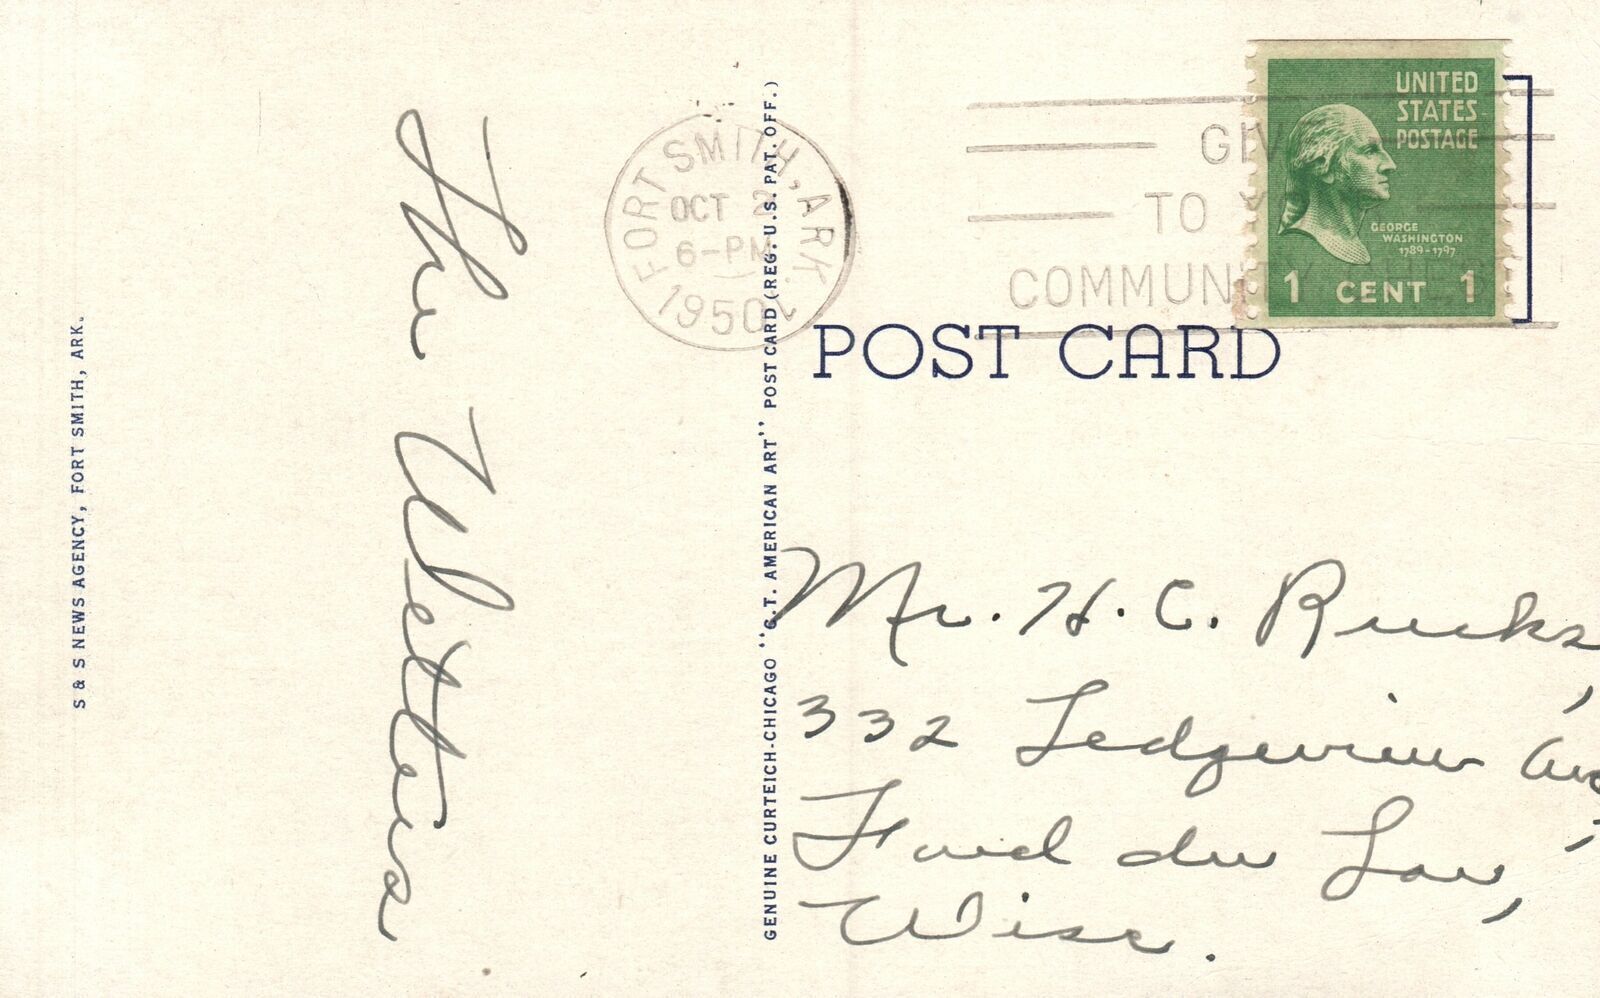 S & S NEWS AGENCY, FORT SMITH, ARK.
The Wetters
GENUINE CURTEICH-CHICAGO "C.T. AMERICAN ART" POST CARD (REG. U.S. PAT. OFF.)
FORT SMITH, ARK.
OCT 2
6-PM
1950
GIV
TO
COMMUNITY CHES
UNITED
STATES
POSTAGE
GEORGE
WASHINGTON
1789-1797
1 CENT 1
POST CARD
Mr. H. C. Rucks,
332 Ledgeview Ave,
Fond du Lac,
Wisc.